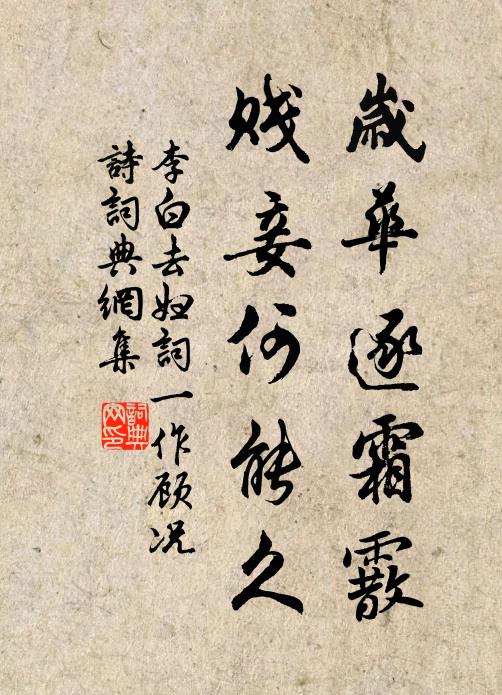 歲華逐霜霰
賤妾何能久
李白去婦詞一作顧況
詩詞典網集
詞典網印